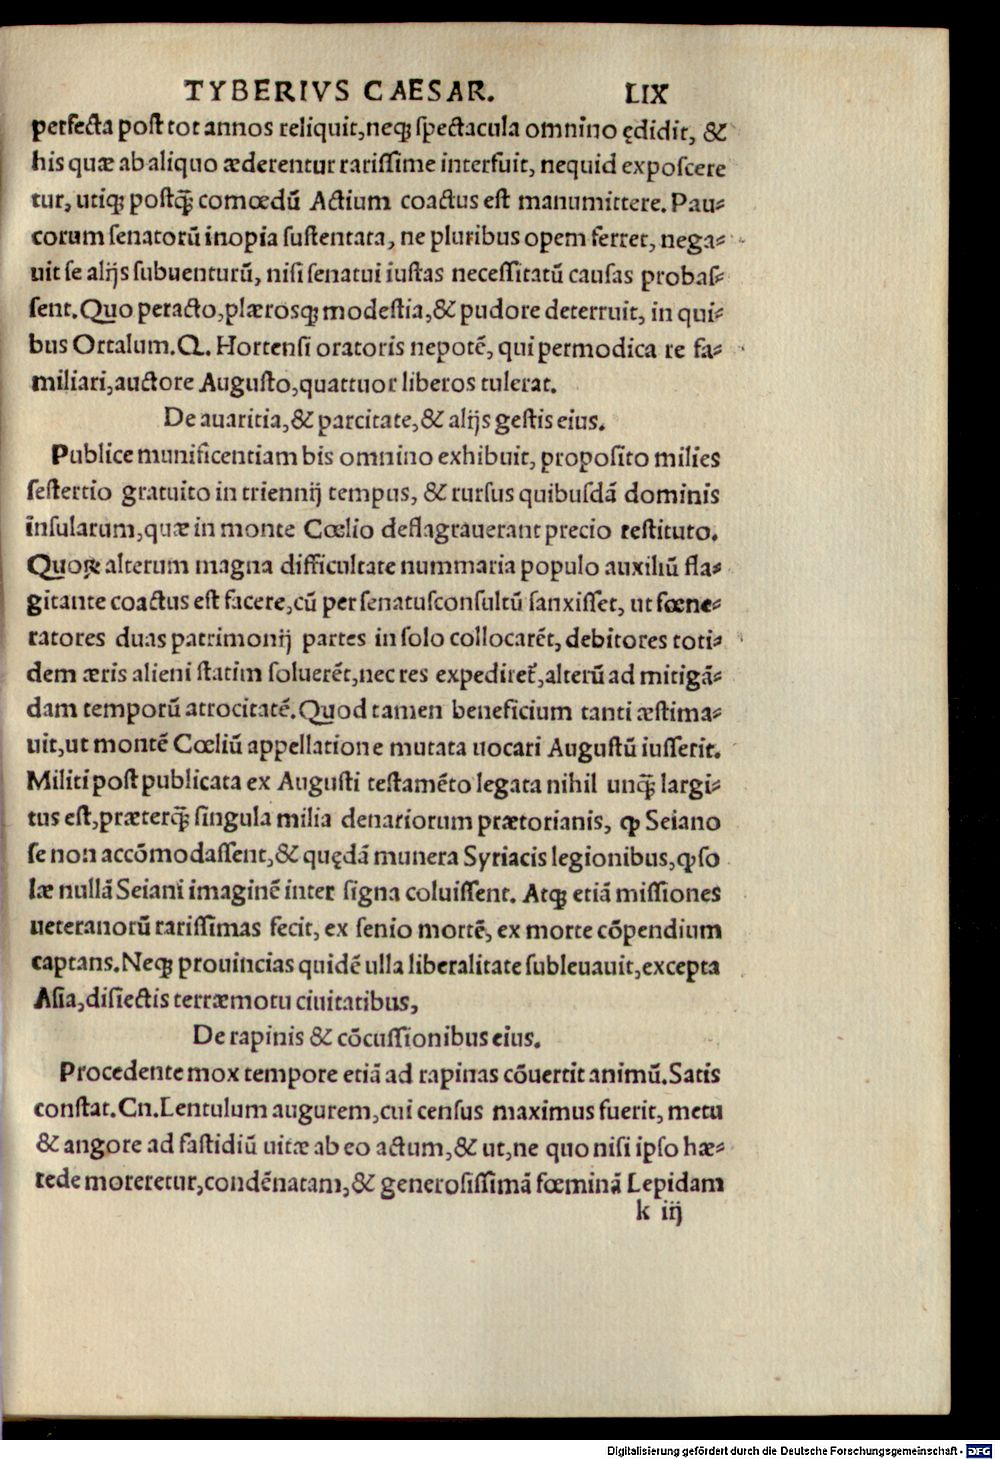 TYBERIVS CAESAR. LIX
perfecta post tot annos reliquit,neqꝫ spectacula omnino ędidit, &
his quæ ab aliquo æderentur rarissime interfuit, nequid exposcere
tur, utiqꝫ postq̃ comœdũ Actium coactus est manumittere. Pau⸗
corum senatorũ inopia sustentata, ne pluribus opem ferret, nega⸗
uit se alijs subuenturũ, nisi senatui iustas necessitatũ causas probas⸗
sent. Quo peracto,plærosqꝫ modestia,& pudore deterruit, in qui⸗
bus Ortalum.Q. Hortensi oratoris nepotẽ, qui permodica re fa⸗
miliari,auctore Augusto,quattuor liberos tulerat.
De auaritia,& parcitate,& alijs gestis eius.
Publice munificentiam bis omnino exhibuit, proposito milies
sestertio gratuito in triennij tempus, & rursus quibusdã dominis
insularum,quæ in monte Cœlio deflagrauerant precio restituto.
Quoꝝ alterum magna difficultate nummaria populo auxiliũ fla⸗
gitante coactus est facere,cũ per senatusconsultũ sanxisset, ut fœne⸗
ratores duas patrimonij partes in solo collocarẽt, debitores toti⸗
dem æris alieni statim soluerẽt,nec res expediret̃,alterũ ad mitigã⸗
dam temporũ atrocitatẽ.Quod tamen beneficium tanti æstima⸗
uit,ut montẽ Cœliũ appellatione mutata uocari Augustũ iusserit.
Militi post publicata ex Augusti testamẽto legata nihil unq̃ largi⸗
tus est,præterq̃ singula milia denariorum prætorianis, ꝙ Seiano
se non accõmodassent,& quędã munera Syriacis legionibus,ꝙ so
læ nullã Seiani imaginẽ inter signa coluissent. Atqꝫ etiã missiones
ueteranorũ rarissimas fecit, ex senio mortẽ, ex morte cõpendium
captans.Neqꝫ prouincias quidẽ ulla liberalitate subleuauit,excepta
Asia,disiectis terræmotu ciuitatibus,
De rapinis & cõcussionibus eius.
Procedente mox tempore etiã ad rapinas cõuertit animũ.Satis
constat.Cn.Lentulum augurem,cui census maximus fuerit, metu
& angore ad fastidiũ uitæ ab eo actum,& ut,ne quo nisi ipso hæ⸗
rede moreretur,condẽnatam,& generosissimã fœminã Lepidam
k iij
Digitalisierung gefördert durch die Deutsche Forschungsgemeinschaft - DFG